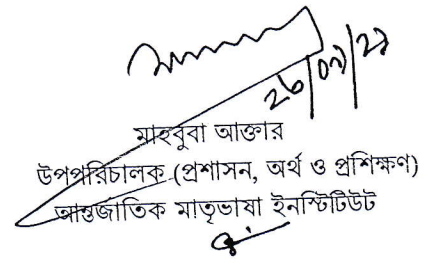 মাহবুবা আক্তার
উপপরিচালক (প্রশাসন, অর্থ ও প্রশিক্ষণ)
আন্তর্জাতিক মাতৃভাষা ইনস্টিটিউট